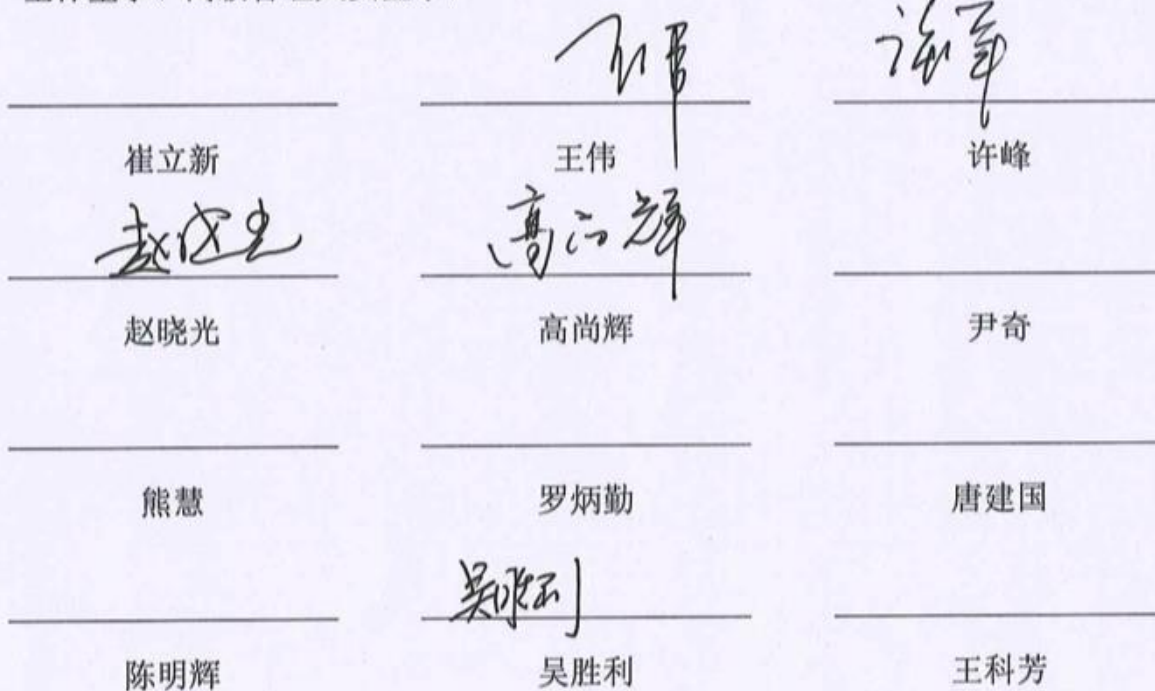 王伟 许峰
崔立新 王伟 许峰
赵晓光 高尚辉
赵晓光 高尚辉 尹奇
熊慧 罗炳勤 唐建国
吴胜利
陈明辉 吴胜利 王科芳